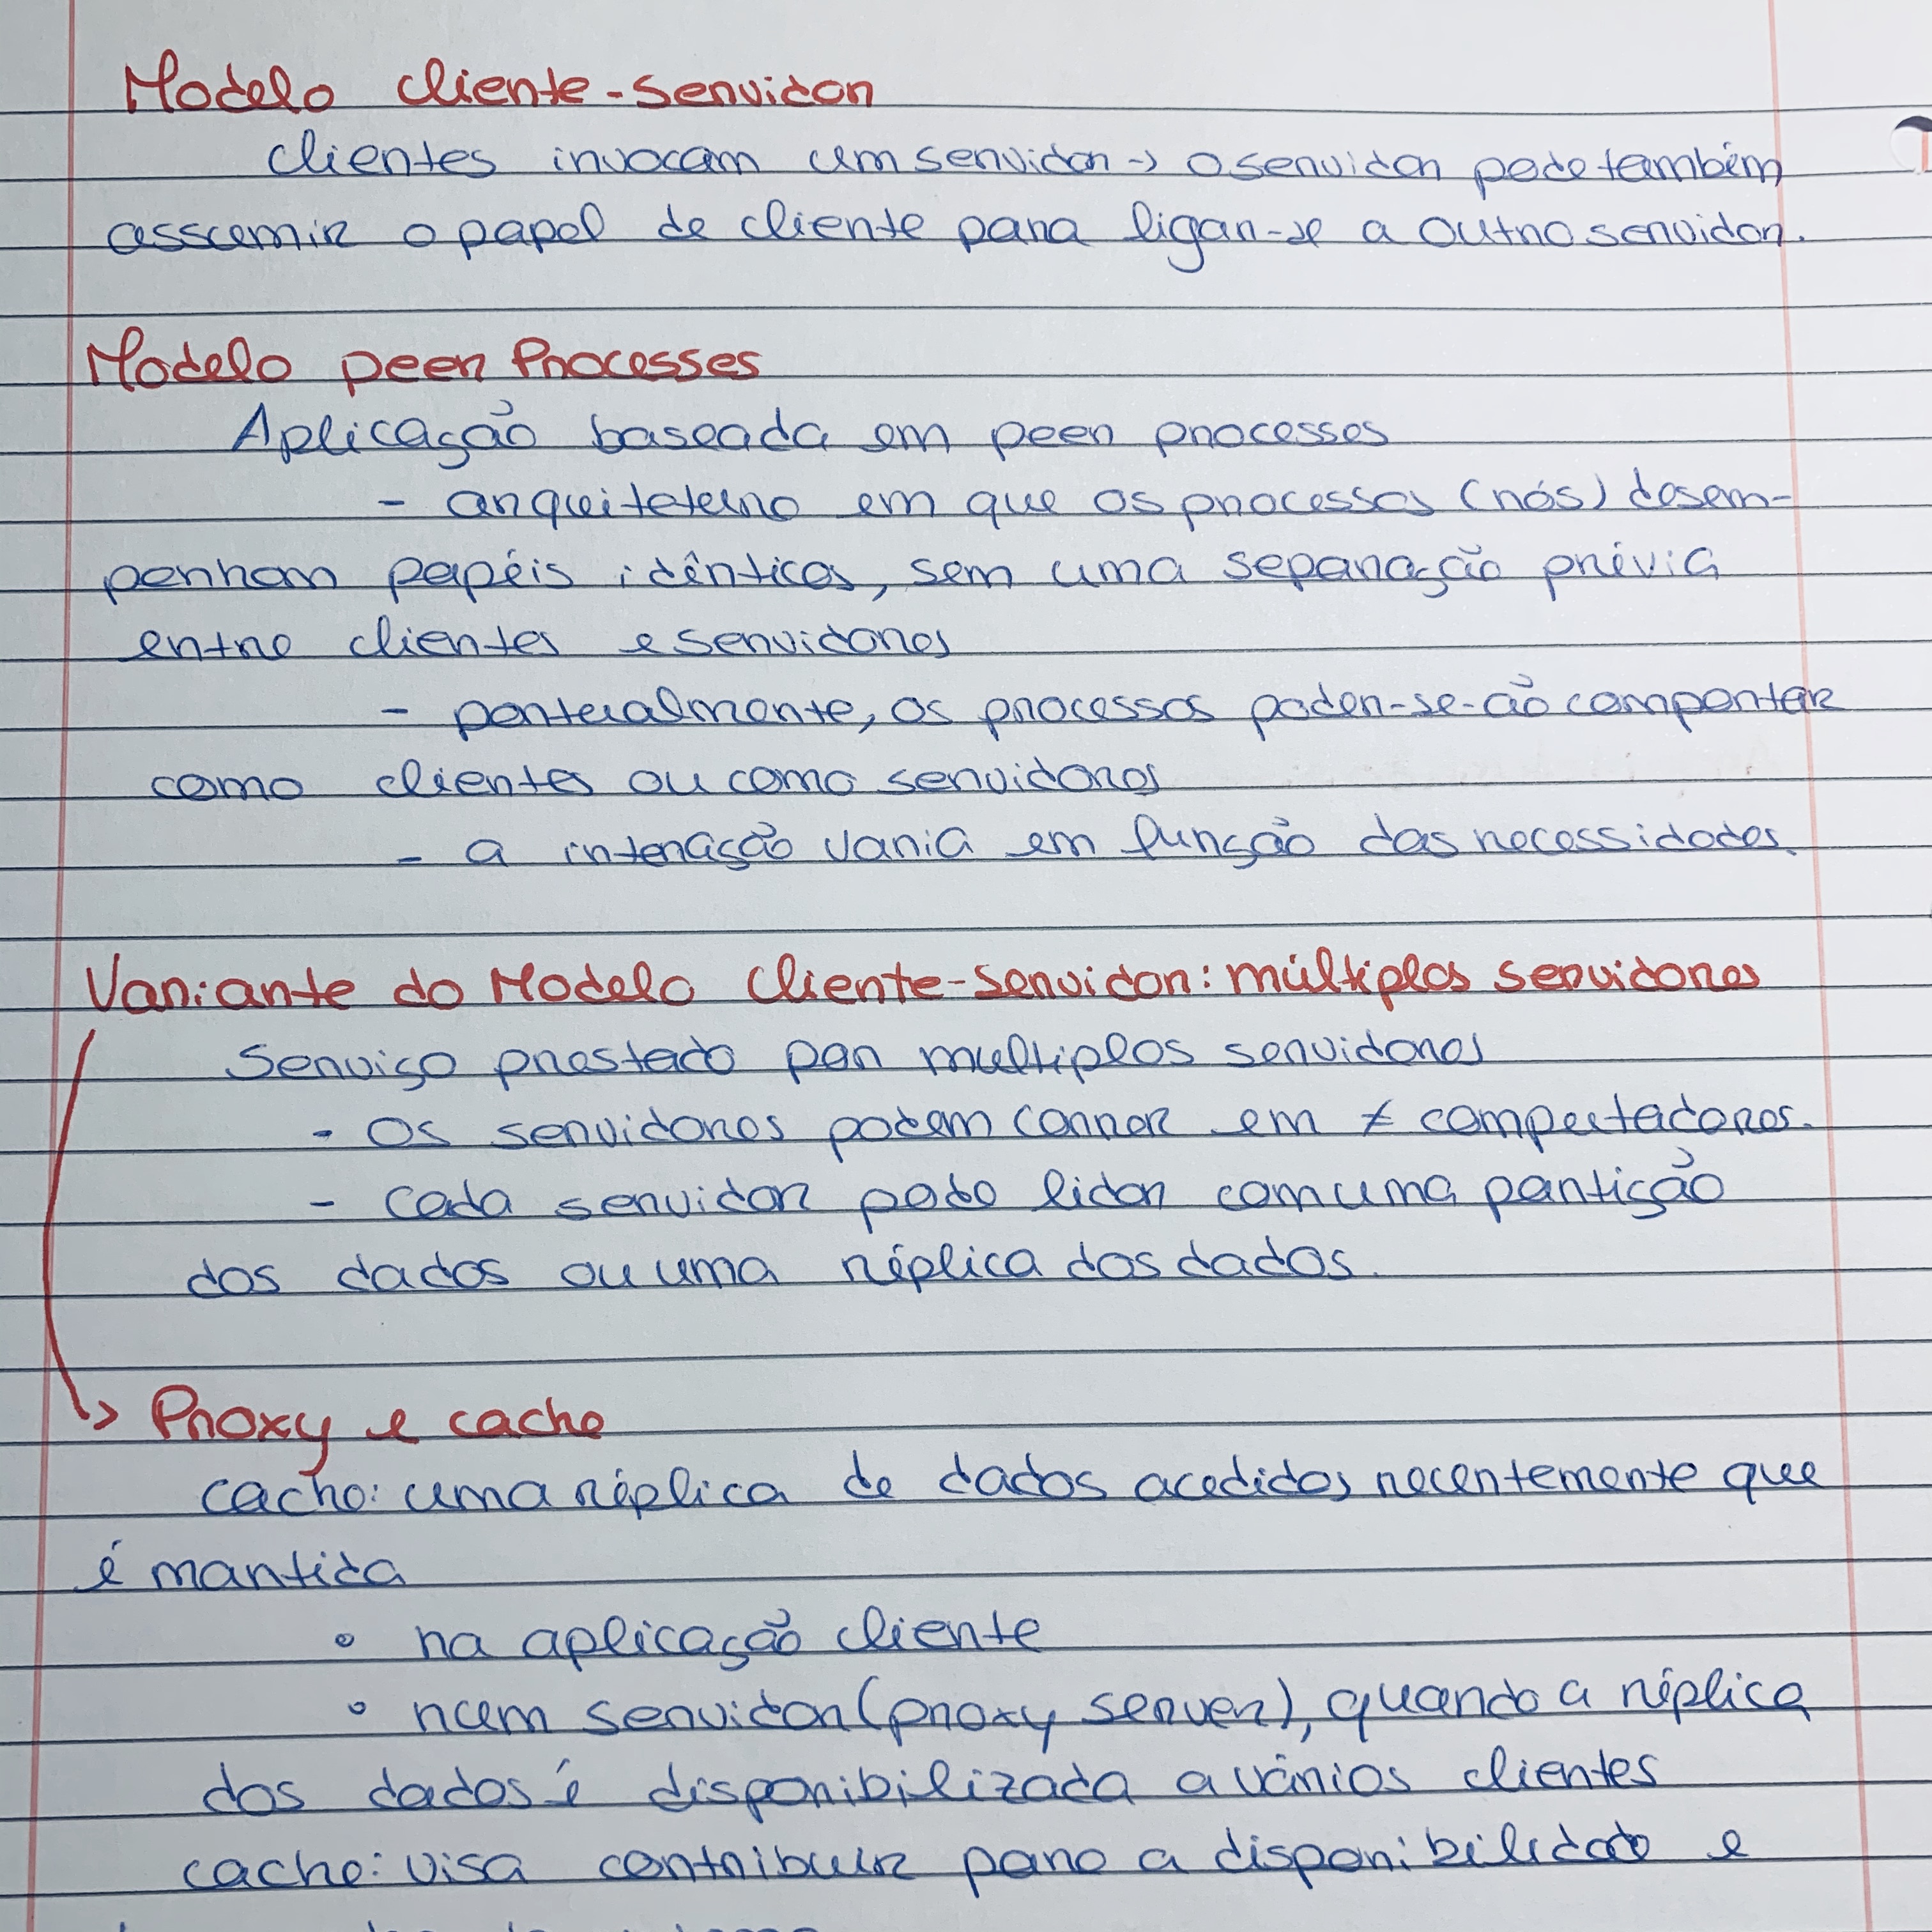 Modelo cliente-servidor
clientes invocam um servidor -> o servidor pode também
assumir o papel de cliente para ligar-se a outro servidor.
Modelo peer Processes
Aplicação baseada em peer processes
- arquiteturo em que os processos (nós) desem-
penham papéis idênticos, sem uma separação prévia
entre clientes e servidores
- pontualmente, os processos poder-se-ão comportar
como clientes ou como servidores
- a interação varia em função das necessidades.
Variante do Modelo Cliente-Servidor: múltiplos servidores
Serviço prestado por multiplos servidores
- Os servidores podem correr em ≠ computadores.
- Cada servidor pode lidar com uma partição
dos dados ou uma réplica dos dados.
-> Proxy e cache
cache: uma réplica de dados acedidos recentemente que
é mantida
° na aplicação cliente
° num servidor (proxy server), quando a réplica
dos dados é disponibilizada a vários clientes
cache: visa contribuir para a disponibilidade e